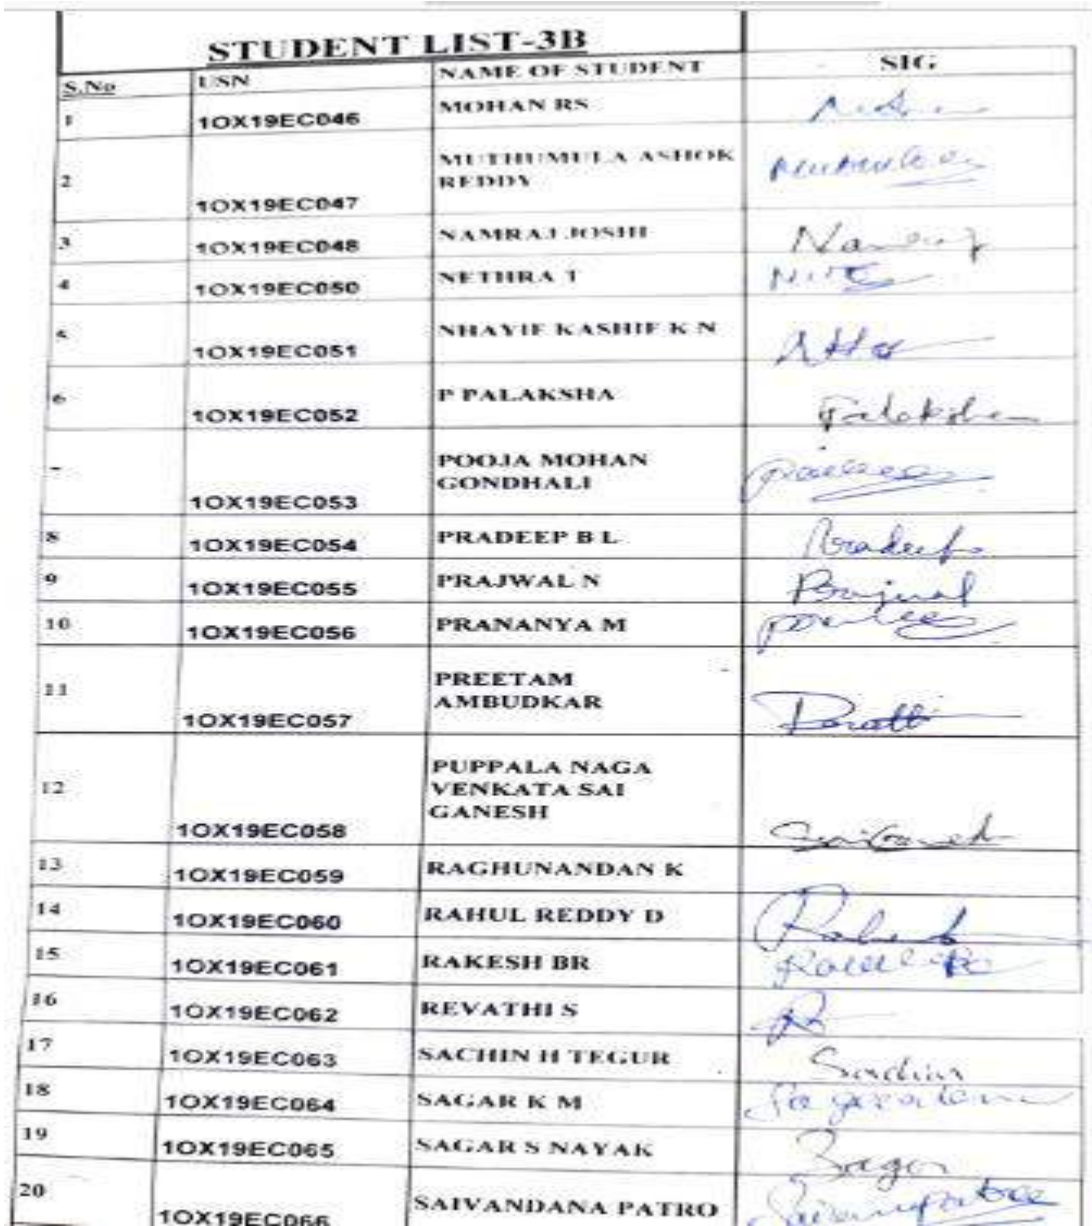 STUDENT LIST-3B
S.No USN NAME OF STUDENT SIG
1 1OX19EC046 MOHAN RS
2 1OX19EC047 MUTHUMULA ASHOK
REDDY
3 1OX19EC048 NAMRAJ JOSHI
4 1OX19EC050 NETHRA T
5 1OX19EC051 NHAYIF KASHIF K N
6 1OX19EC052 P PALAKSHA Palaksha
7 1OX19EC053 POOJA MOHAN
GONDHALI
8 1OX19EC054 PRADEEP B L Pradeep
9 1OX19EC055 PRAJWAL N Prajwal
10 1OX19EC056 PRANANYA M
11 1OX19EC057 PREETAM
AMBUDKAR
12 1OX19EC058 PUPPALA NAGA
VENKATA SAI
GANESH SaiGanesh
13 1OX19EC059 RAGHUNANDAN K
14 1OX19EC060 RAHUL REDDY D
15 1OX19EC061 RAKESH BR
16 1OX19EC062 REVATHI S
17 1OX19EC063 SACHIN H TEGUR Sachin
18 1OX19EC064 SAGAR K M
19 1OX19EC065 SAGAR S NAYAK Sagar
20 1OX19EC066 SAIVANDANA PATRO